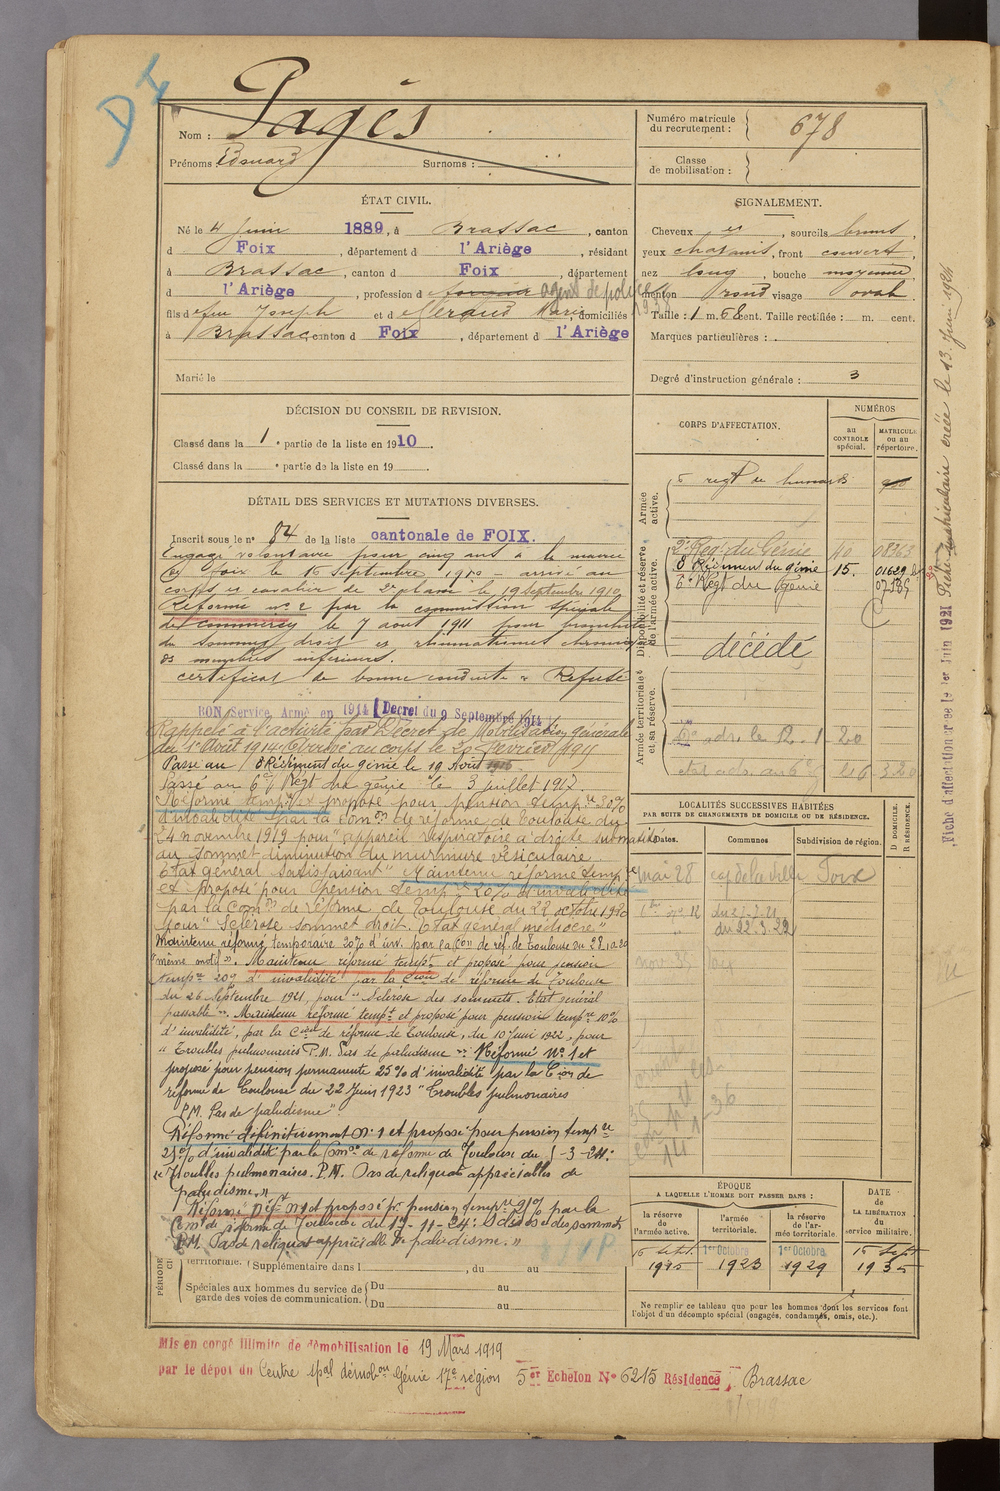 D I
Nom : Pagès
Prénoms : Edouard Surnoms :
Numéro matricule du recrutement : 678
Classe de mobilisation :
ÉTAT CIVIL.
Né le 4 Juin 1889, à Brassac, canton
d Foix, département d l'Ariège, résidant
à Brassac, canton d Foix, département
d l'Ariège, profession d agent de police
fils de feu Joseph et d Maria, domiciliés
à Brassac canton d Foix, département d l'Ariège
Marié le
SIGNALEMENT.
Cheveux , sourcils bruns,
yeux chatains, front couvert,
nez long, bouche moyenne,
menton rond visage ovale
Taille : 1 m. 68 cent. Taille rectifiée : m. cent.
Marques particulières :
Degré d'instruction générale : 3
DÉCISION DU CONSEIL DE REVISION.
Classé dans la 1e partie de la liste en 1910.
Classé dans la e partie de la liste en 19
DÉTAIL DES SERVICES ET MUTATIONS DIVERSES.
Inscrit sous le n° 84 de la liste cantonale de FOIX.
Engagé volontaire pour cinq ans à la mairie
de Foix le 16 Septembre 1910 - arrivé au
corps et cavalier de 2e classe le 19 Septembre 1910
Réformé n° 2 par la commission spéciale
de Commercy le 7 aout 1911 pour bronchite
du sommet droit et rhumatismes chroniques
des membres inférieurs.
certificat de bonne conduite "Refusé"
BON Service Armé en 1914 [Decret du 9 Septembre 1914
Rappelé à l'activité par Décret de Mobilisation générale
du 1er Août 1914. Arrivé au corps le 20 Février 1915
Passé au 8 Régiment du génie le 19 Août 1916
Passé au 6e Régt du génie le 3 juillet 1917.
Réformé tempre et proposé pour pension tempre 30%
d'invalidité par la Comon de réforme de Toulouse du
24 novembre 1919 pour "appareil respiratoire à droite submatité
au sommet diminution du murmure vésiculaire.
Etat général satisfaisant" Maintenu réformé tempre
et proposé pour pension tempre 20% d'invalidité
par la Comon de réforme de Toulouse du 22 octobre 1920
pour "Sclérose sommet droit. Etat général médiocre"
Maintenu réformé temporaire 20% d'inv. par la Con de réf. de Toulouse du 22.10.20
"même motif". Maintenu réformé tempre et proposé pour pension
tempre 20% d'invalidité par la Cion de réforme de Toulouse
du 26 Septembre 1921, pour "Sclérose des sommets. Etat général
passable". Maintenu réformé tempre et proposé pour pension tempre 10%
d'invalidité, par la Cion de réforme de Toulouse, du 10 Juin 1922, pour
"Troubles pulmonaires P.M. Pas de paludisme". Réformé N° 1 et
proposé pour pension permanente 25% d'invalidité par la Cion de
réforme de Toulouse du 22 Juin 1923 "Troubles pulmonaires
P.M. Pas de paludisme"
Réformé définitivement N° 1 et proposé pour pension tempre
25% d'invalidité par la Comon de réforme de Toulouse du 1-3-24:
"Troubles pulmonaires. P.M. Pas de reliquat appréciables de
paludisme."
Réformé déft N°1 et proposé pr pension tempre % par la
Comon de réforme de Toulouse du -11-24: des sommets
P.M. Pas de reliquat appréciable de paludisme."
territoriale. (Supplémentaire dans l , du au
Spéciales aux hommes du service de garde des voies de communication. Du au
Du au
CORPS D'AFFECTATION.
NUMÉROS
au CONTROLE spécial.
MATRICULE ou au répertoire.
Armée active.
5 regt de hussards
Disponibilité et réserve de l'armée active.
2e Regt du Génie
8 Régiment du génie 15. 01629
6e Régt du Génie
décédé
Armée territoriale et sa réserve.
le 12.1.20
Fiche matriculaire créée le 13 Juin 1921
Fiche d'affectation créée le 1er Juin 1921
LOCALITÉS SUCCESSIVES HABITÉES
PAR SUITE DE CHANGEMENTS DE DOMICILE OU DE RÉSIDENCE.
Dates. Communes Subdivision de région. D DOMICILE. R RÉSIDENCE.
mai 28 Foix
du 22.3.22
ÉPOQUE
A LAQUELLE L'HOMME DOIT PASSER DANS :
la réserve de l'armée active.
l'armée territoriale.
la réserve de l'armée territoriale.
DATE de LA LIBÉRATION du service militaire.
16 Sept. 1915
1er Octobre 1923
1er Octobre 1929
16 Sept 1935
Ne remplir ce tableau que pour les hommes dont les services font l'objet d'un décompte spécial (engagés, condamnés, omis, etc.).
Mis en congé illimité de démobilisation le 19 Mars 1919
par le dépot du Centre spal démobon Génie 17e région 5er Echelon N° 6215 Résidence, Brassac